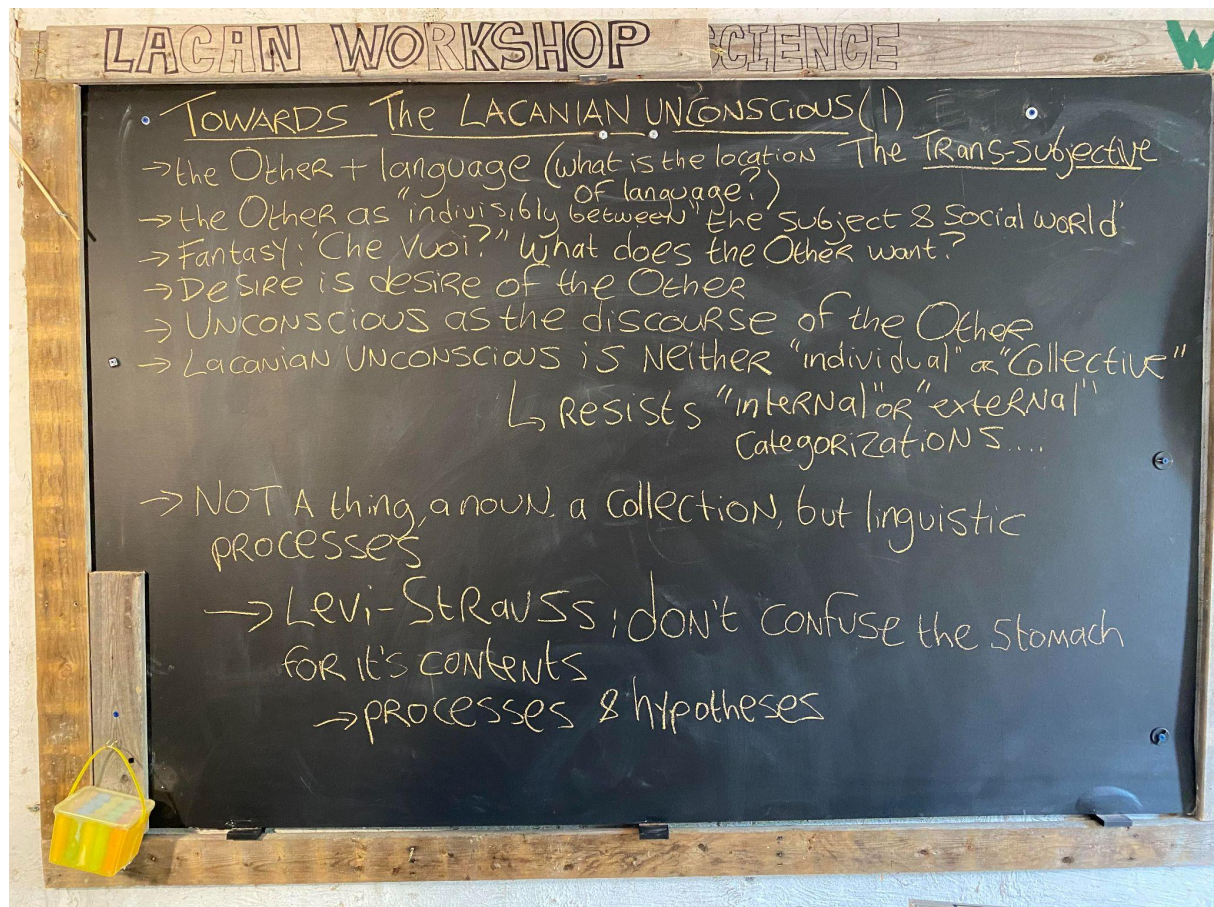 LACAN WORKSHOP SCIENCE W
TOWARDS The LACANIAN UNCONSCIOUS (1)
The Trans-Subjective
→ the Other + language (what is the location
of language?)
→ the Other as "indivisibly between" the 'subject & social world'
→ Fantasy: 'Che Vuoi?" What does the Other want?
→ Desire is desire of the Other
→ Unconscious as the discourse of the Other
→ Lacanian Unconscious is Neither "individual" or "Collective"
↳ Resists "internal" or "external"
Categorizations....
→ NOT A thing, a noun, a collection, but linguistic
processes
→ Levi-Strauss; don't confuse the stomach
for it's contents
→ processes & hypotheses